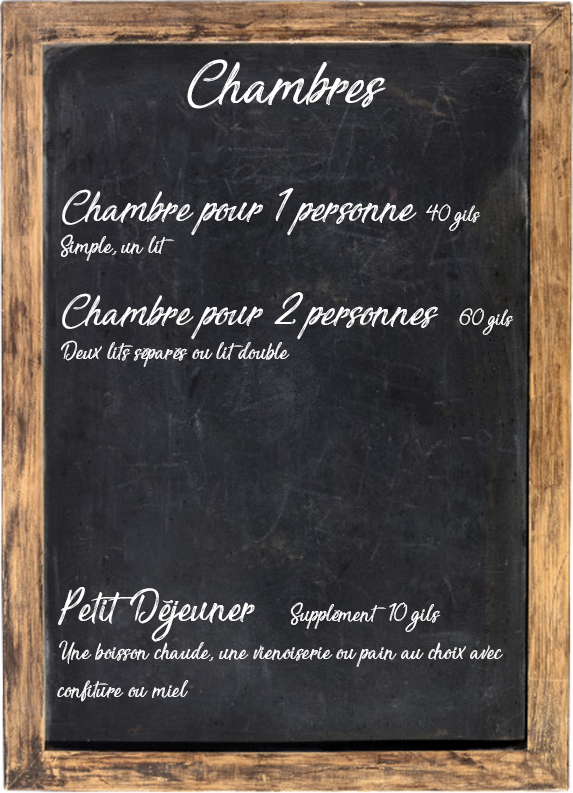 Chambres
Chambre pour 1 personne 40 gils
Simple, un lit
Chambre pour 2 personnes 60 gils
Deux lits séparés ou lit double
Petit Déjeuner Supplément 10 gils
Une boisson chaude, une vienoiserie ou pain au choix avec
confiture ou miel